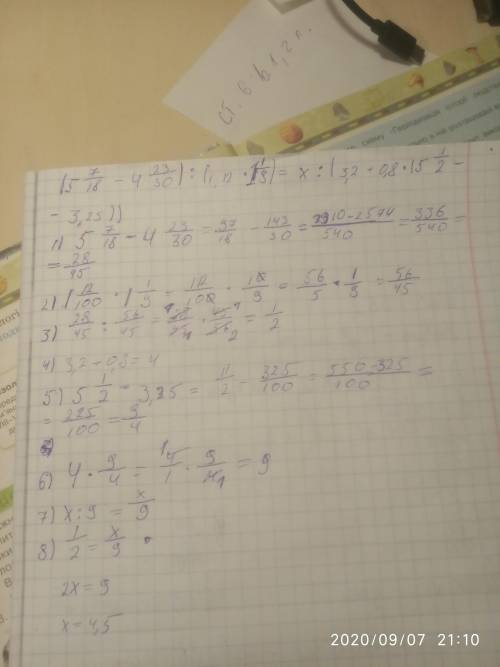 ст. 6 в 1, 2 п.
(5 7/18 - 4 23/30) : (1,12 · 1 1/9) = x : (3,2 + 0,8 · (5 1/2 -
- 3,25))
1) 5 7/18 - 4 23/30 = 97/18 - 143/30 = 2910-2574/540 = 336/540 =
= 28/45
2) 1 12/100 · 1 1/9 = · 10/9 = 56/5 · 1/9 = 56/45
3) 28/45 : 56/45 = 28/45 · 45/56 = 1/2
4) 3,2 + 0,8 = 4
5) 5 1/2 - 3,25 = 11/2 - 325/100 = 550-325/100 =
= 225/100 = 9/4
6) 4 · 9/4 = 4/1 · 9/4 = 9
7) x : 9 = x/9
8) 1/2 = x/9
2x = 9
x = 4,5
2020/09/07 21:10